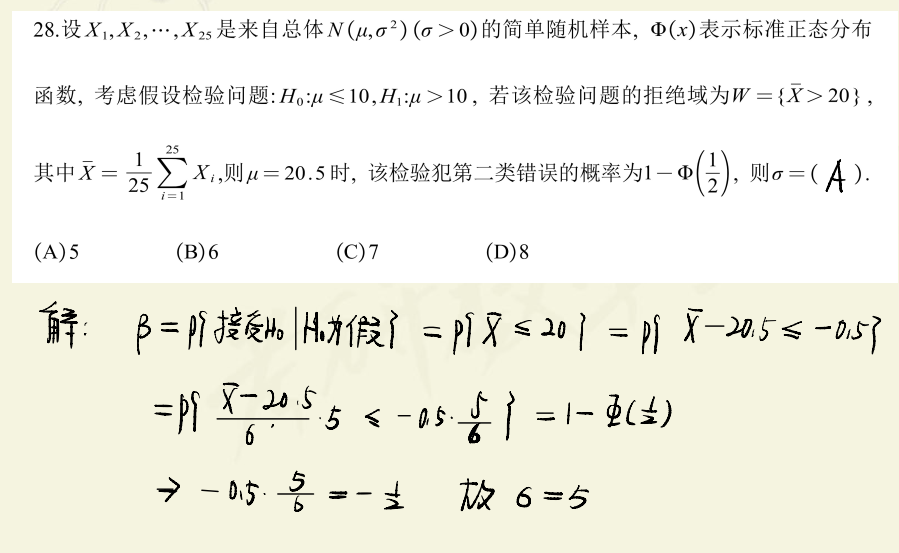 28.设X₁,X₂,⋯,X₂₅是来自总体N(μ,σ²)(σ>0)的简单随机样本, Φ(x)表示标准正态分布
函数, 考虑假设检验问题:H₀:μ≤10,H₁:μ>10, 若该检验问题的拒绝域为W={X̄>20},
其中X̄=1/25 ∑_{i=1}^{25} X_i,则μ=20.5时, 该检验犯第二类错误的概率为1−Φ(1/2), 则σ=( A ).
(A)5 (B)6 (C)7 (D)8
解: β=P{接受H₀|H₀为假}=P{X̄≤20}=P{X̄−20.5≤−0.5}
=P{(X̄−20.5)/σ·5≤−0.5·5/σ}=1−Φ(1/2)
→ −0.5·5/σ=−1/2 故 σ=5